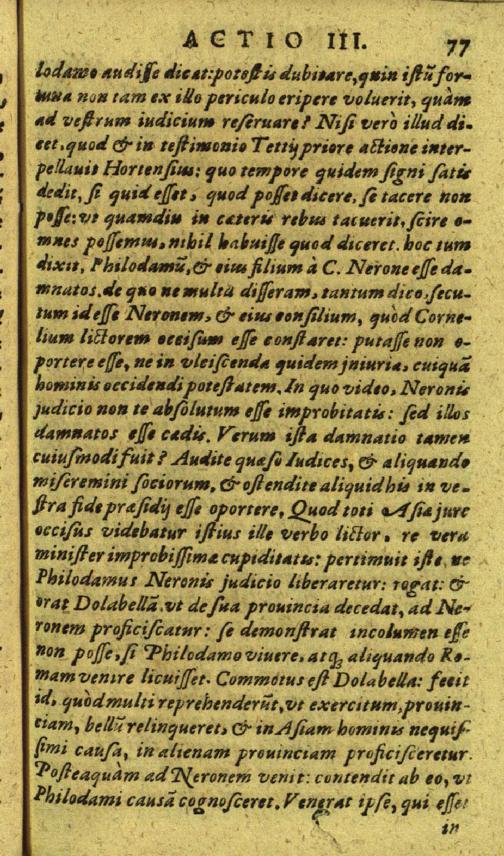 ACTIO III. 77
lodamo audisse dicat: potestis dubitare, quin istũ for-
tuna non tam ex illo periculo eripere voluerit, quàm
ad vestrum iudicium reseruare? Nisi verò illud di-
cet, quod & in testimonio Tettij priore actione inter-
pellauit Hortensius: quo tempore quidem signi satis
dedit, si quid esset, quod posset dicere, se tacere non
posse: vt quamdiu in cæteris rebus tacuerit, scire o-
mnes possemus, nihil habuisse quod diceret. hoc tum
dixit, Philodamũ, & eius filium à C. Nerone esse da-
mnatos. de quo ne multa disseram, tantum dico, secu-
tum id esse Neronem, & eius consilium, quòd Corne-
lium lictorem occisum esse constaret: putasse non o-
portere esse, ne in vlciscenda quidem jniuria, cuiquã
hominis occidendi potestatem. In quo video, Neronis
judicio non te absolutum esse improbitatis: sed illos
damnatos esse cædis. Verum ista damnatio tamen
cuiusmodi fuit? Audite quæso Iudices, & aliquando
miseremini sociorum, & ostendite aliquid his in ve-
stra fide præsidij esse oportere, Quod toti Asiæ jure
occisus videbatur istius ille verbo lictor, re vera
minister improbissimæ cupiditatis: pertimuit iste, ne
Philodamus Neronis judicio liberaretur: rogat: &
orat Dolabellã, vt de sua prouincia decedat, ad Ne-
ronem proficiscatur: se demonstrat incolumen esse
non posse, si Philodamo viuere, atq; aliquando Ro-
mam venire licuisset. Commotus est Dolabella: fecit
id, quòd multi reprehenderũt, vt exercitum, prouin-
ciam, bellũ relinqueret, & in Asiam hominis nequis-
simi causa, in alienam prouinciam proficisceretur.
Posteaquàm ad Neronem venit: contendit ab eo, vt
Philodami causã cognosceret. Venerat ipse, qui esset
in